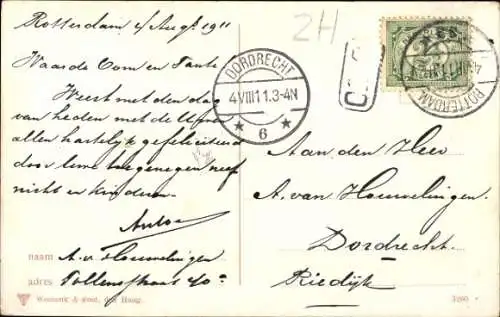 Rotterdam 4 Aug. 1911
2H
Waarde Oom en Tante
Weest met den dag
van heden met de Uwen
allen hartelijk gefeliciteerd
door uwe toegenegen neef
nicht en kinderen
Anton
naam A. v. Houwelingen
adres Tollensstraat
Aan den Heer
A. van Houwelingen
Dordrecht
Riedijk
DORDRECHT
4 VIII 11.3-4N
6
ROTTERDAM
Weenenk & Snel, den Haag.